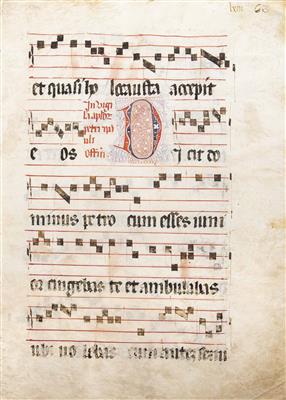 lxiii 63
et quasi ho locausta accepit
In vigi
petri
e os D icit do
minus petro cum esses iuni
or cingebas te et ambulabas
ubi uo lebas cum autem senu